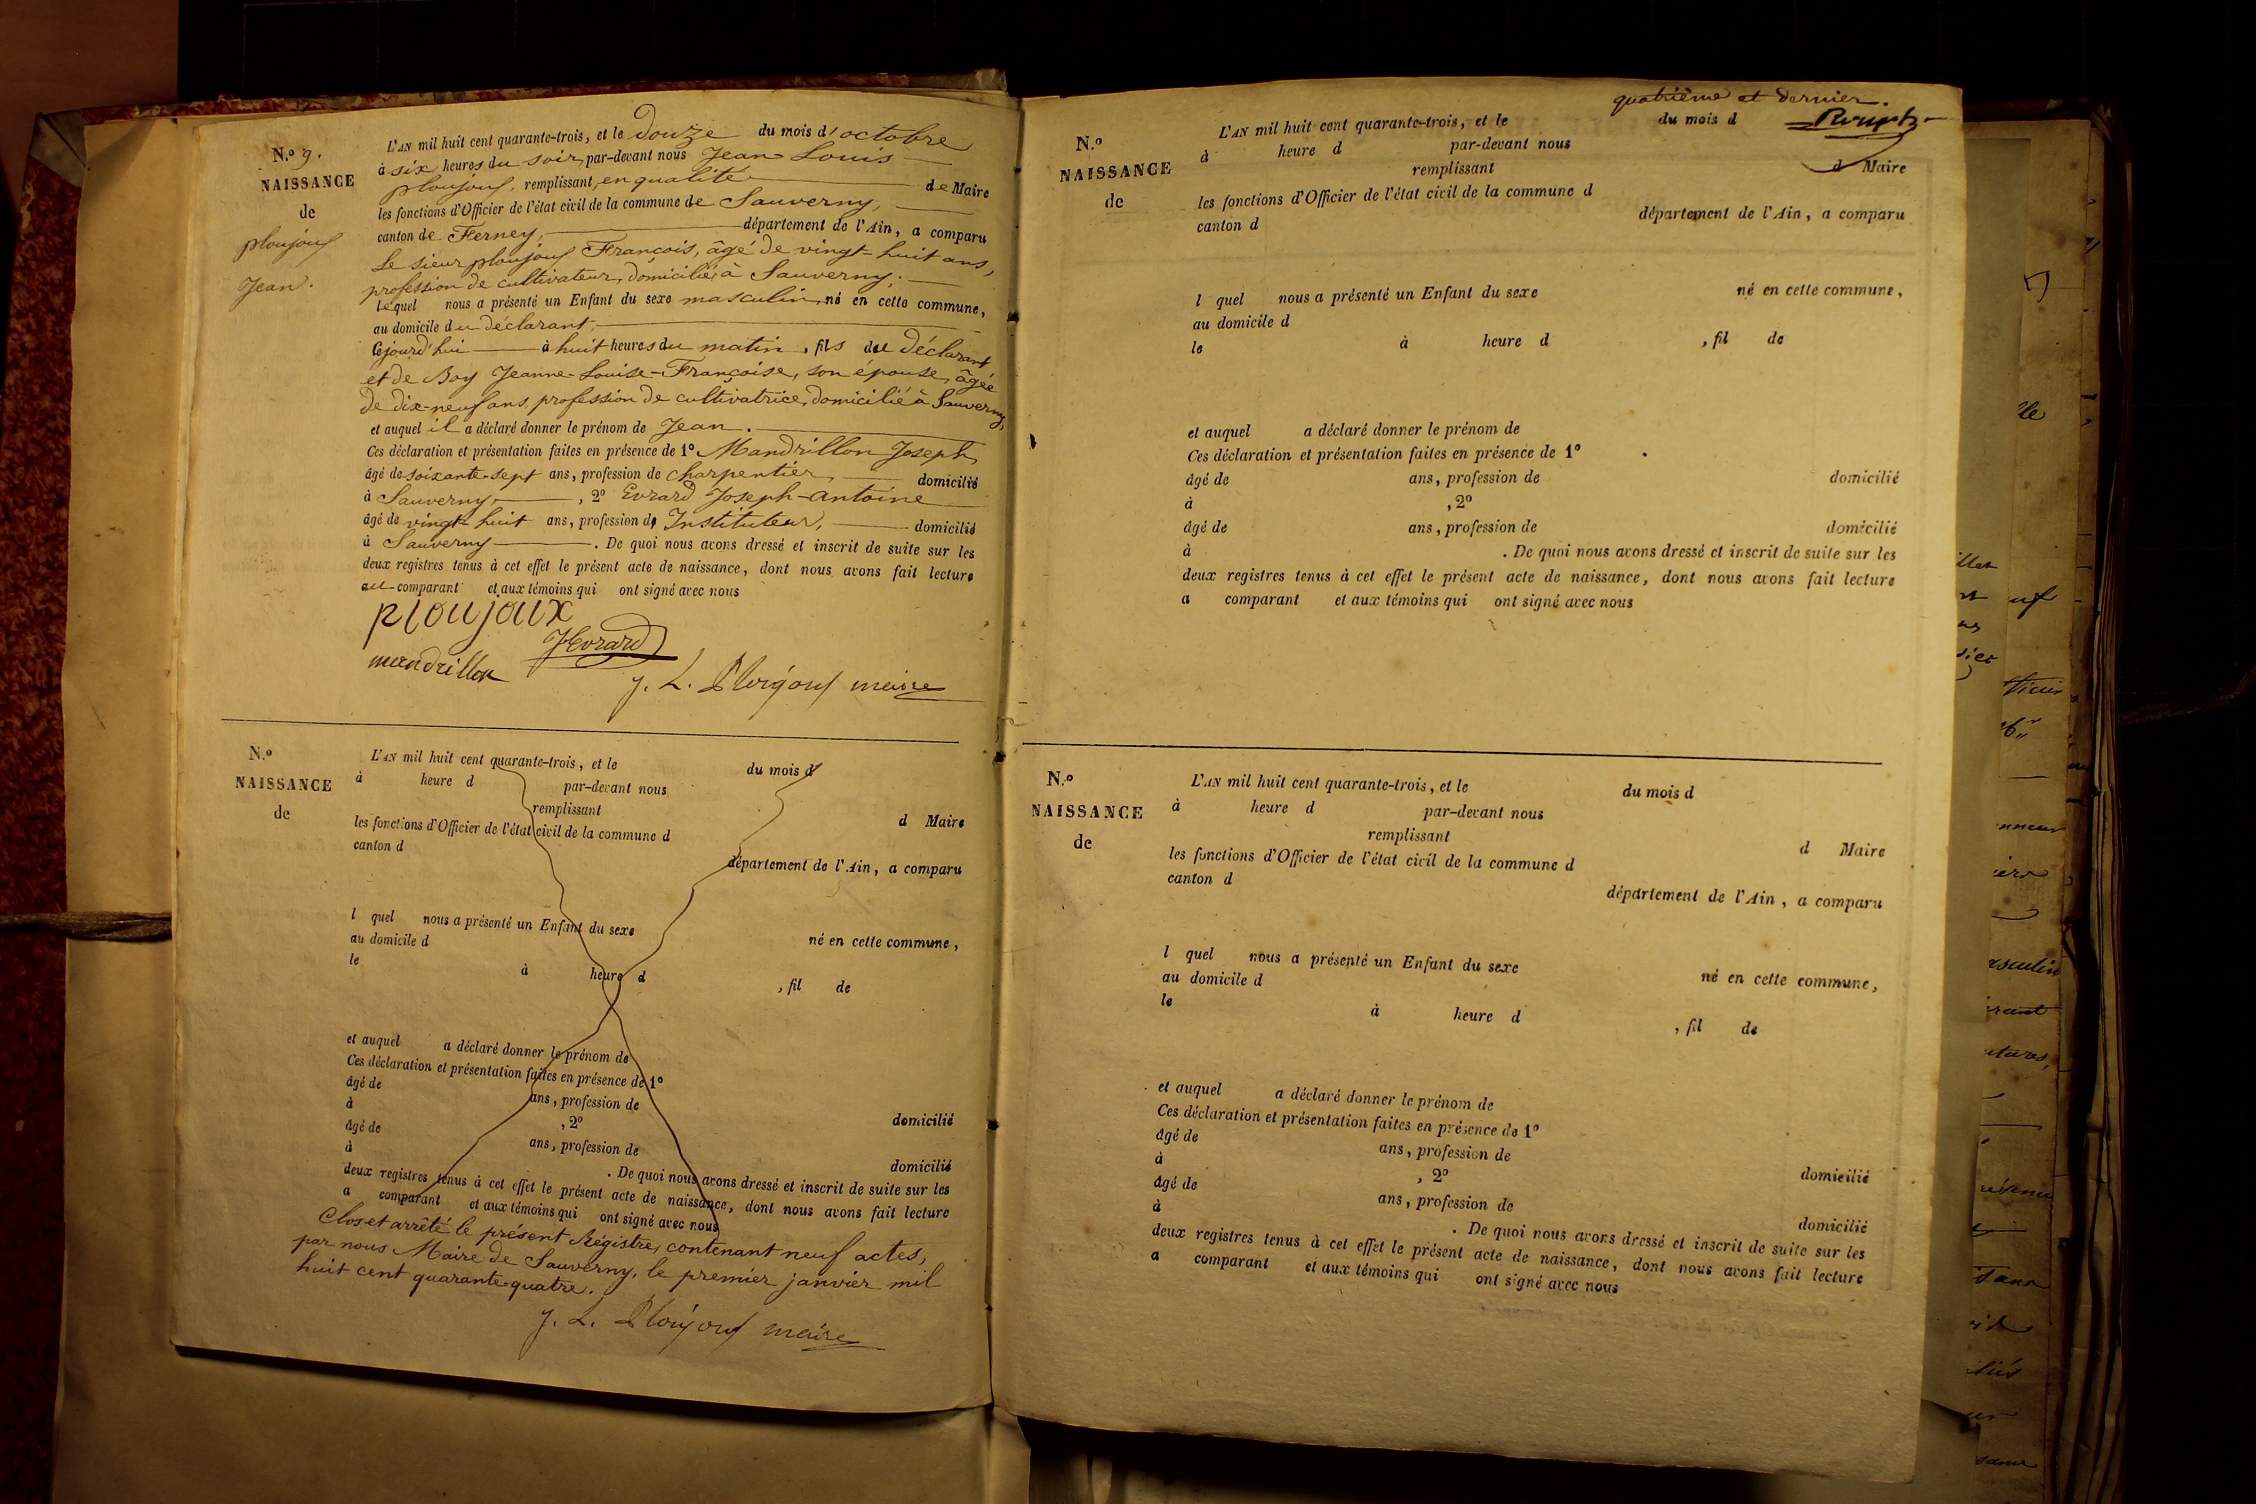 N.º 9.
NAISSANCE
de
ploujoux
Jean.
L'AN mil huit cent quarante-trois, et le douze du mois d'octobre
à six heures du soir, par-devant nous Jean-Louis
ploujoux, remplissant, en qualité de Maire
les fonctions d'Officier de l'état civil de la commune de Sauverny,
canton de Ferney, département de l'Ain, a comparu
Le sieur ploujoux François, âgé de vingt-huit ans,
profession de cultivateur, domicilié à Sauverny.
lequel nous a présenté un Enfant du sexe masculin, né en cette commune,
au domicile du déclarant,
Cejourd'hui à huit heures du matin, fils du déclarant
et de Boy Jeanne-Louise-Françoise, son épouse, âgée
de dix-neuf ans, profession de cultivatrice, domicilié à Sauverny,
et auquel il a déclaré donner le prénom de Jean.
Ces déclaration et présentation faites en présence de 1º Mandrillon Joseph,
âgé de soixante-sept ans, profession de charpentier, domicilié
à Sauverny, 2º Evrard Joseph-antoine
âgé de vingt-huit ans, profession de Instituteur, domicilié
à Sauverny. De quoi nous avons dressé et inscrit de suite sur les
deux registres tenus à cet effet le présent acte de naissance, dont nous avons fait lecture
au comparant et aux témoins qui ont signé avec nous
ploujoux
JEvrard
mandrillon
J. L. Ploujoux maire
N.º
NAISSANCE
de
L'AN mil huit cent quarante-trois, et le du mois d
à heure d par-devant nous
remplissant d Maire
les fonctions d'Officier de l'état civil de la commune d
canton d département de l'Ain, a comparu
l quel nous a présenté un Enfant du sexe né en cette commune,
au domicile d
le à heure d , fil de
et auquel a déclaré donner le prénom de
Ces déclaration et présentation faites en présence de 1º
âgé de ans, profession de domicilié
à , 2º
âgé de ans, profession de domicilié
à . De quoi nous avons dressé et inscrit de suite sur les
deux registres tenus à cet effet le présent acte de naissance, dont nous avons fait lecture
a comparant et aux témoins qui ont signé avec nous
Clos et arrêté le présent Régistre, contenant neuf actes,
par nous Maire de Sauverny, le premier janvier mil
huit cent quarante-quatre.
J. L. Ploujoux maire
quatrième et dernier.
N.º
NAISSANCE
de
L'AN mil huit cent quarante-trois, et le du mois d
à heure d par-devant nous
remplissant d Maire
les fonctions d'Officier de l'état civil de la commune d
canton d département de l'Ain, a comparu
l quel nous a présenté un Enfant du sexe né en cette commune,
au domicile d
le à heure d , fil de
et auquel a déclaré donner le prénom de
Ces déclaration et présentation faites en présence de 1º
âgé de ans, profession de domicilié
à , 2º
âgé de ans, profession de domicilié
à . De quoi nous avons dressé et inscrit de suite sur les
deux registres tenus à cet effet le présent acte de naissance, dont nous avons fait lecture
a comparant et aux témoins qui ont signé avec nous
N.º
NAISSANCE
de
L'AN mil huit cent quarante-trois, et le du mois d
à heure d par-devant nous
remplissant d Maire
les fonctions d'Officier de l'état civil de la commune d
canton d département de l'Ain, a comparu
l quel nous a présenté un Enfant du sexe né en cette commune,
au domicile d
le à heure d , fil de
et auquel a déclaré donner le prénom de
Ces déclaration et présentation faites en présence de 1º
âgé de ans, profession de domicilié
à , 2º
âgé de ans, profession de domicilié
à . De quoi nous avons dressé et inscrit de suite sur les
deux registres tenus à cet effet le présent acte de naissance, dont nous avons fait lecture
a comparant et aux témoins qui ont signé avec nous